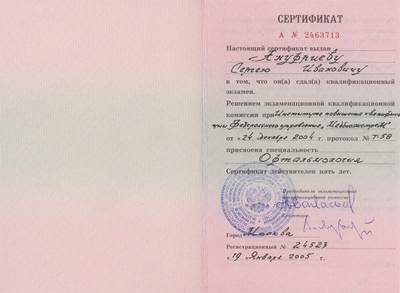 СЕРТИФИКАТ
А № 2463713
Настоящий сертификат выдан
Ануфриеву
Сергею Ивановичу
в том, что он(а) сдал(а) квалификационный
экзамен.
Решением экзаменационной квалификационной
комиссии при Институте повышения квалифика-
ции Федерального управления „Медбиоэкстрем"
от «24 декабря 2004 г. протокол № Т-58
присвоена специальность
Офтальмология
Сертификат действителен пять лет.
Председатель экзаменационной
квалификационной комиссии
Город Москва
Регистрационный № 24523
«19 Января 2005 г.